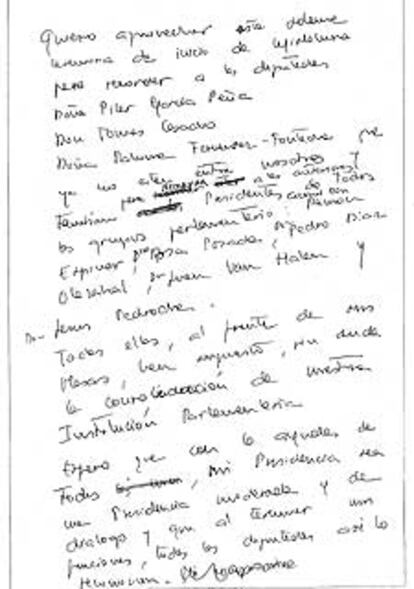 Quiero aprovechar esta solemne
ceremonia de inicio de legislatura
para recordar a los diputados
Doña Pilar García Peña
Don Tomás
Doña Paloma Fernández-Fontecha que
ya no están entre nosotros y
también para a los anteriores
Presidentes de todos
los grupos parlamentarios: Ramón
Espinar, Rosa Posada, Pedro Díez
Olazábal, Juan Van Halen y
Don Jesús Pedroche.
Todos ellos, al frente de sus
Mesas, han supuesto, sin duda
la consolidación de nuestra
Institución Parlamentaria
Espero que con la ayuda de
Todos, mi Presidencia sea
una Presidencia moderada y de
diálogo y que al terminar mis
funciones, todos los diputados así lo